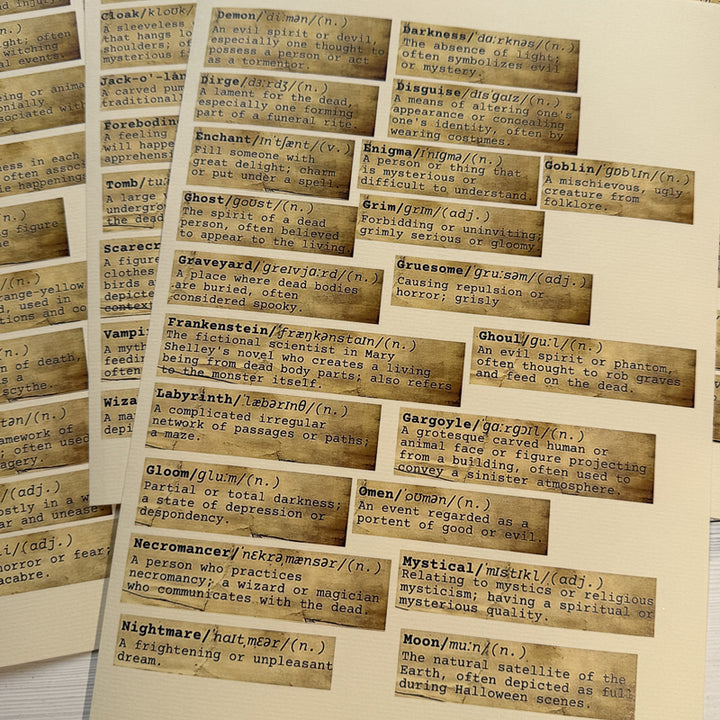 Demon/ˈdiːmən/(n.)
An evil spirit or devil,
especially one thought to
possess a person or act
as a tormentor.
Darkness/ˈdɑːrknəs/(n.)
The absence of light;
often symbolizes evil
or mystery.
Dirge/dɜːrdʒ/(n.)
A lament for the dead,
especially one forming
part of a funeral rite.
Disguise/dɪsˈɡaɪz/(n.)
A means of altering one's
appearance or concealing
one's identity, often by
wearing costumes.
Enchant/ɪnˈtʃænt/(v.)
Fill someone with
great delight; charm
or put under a spell.
Enigma/ɪˈnɪɡmə/(n.)
A person or thing that
is mysterious or
difficult to understand.
Goblin/ˈɡɒblɪn/(n.)
A mischievous, ugly
creature from
folklore.
Ghost/ɡoʊst/(n.)
The spirit of a dead
person, often believed
to appear to the living.
Grim/ɡrɪm/(adj.)
Forbidding or uninviting;
grimly serious or gloomy.
Graveyard/ˈɡreɪvjɑːrd/(n.)
A place where dead bodies
are buried, often
considered spooky.
Gruesome/ˈɡruːsəm/(adj.)
Causing repulsion or
horror; grisly
Frankenstein/ˈfræŋkənstaɪn/(n.)
The fictional scientist in Mary
Shelley's novel who creates a living
being from dead body parts; also refers
to the monster itself.
Ghoul/ɡuːl/(n.)
An evil spirit or phantom,
often thought to rob graves
and feed on the dead.
Labyrinth/ˈlæbərɪnθ/(n.)
A complicated irregular
network of passages or paths;
a maze.
Gargoyle/ˈɡɑːrɡɔɪl/(n.)
A grotesque carved human or
animal face or figure projecting
from a building, often used to
convey a sinister atmosphere.
Gloom/ɡluːm/(n.)
Partial or total darkness;
a state of depression or
despondency.
Omen/ˈoʊmən/(n.)
An event regarded as a
portent of good or evil.
Necromancer/ˈnɛkrəˌmænsər/(n.)
A person who practices
necromancy; a wizard or magician
who communicates with the dead.
Mystical/ˈmɪstɪkl/(adj.)
Relating to mystics or religious
mysticism; having a spiritual or
mysterious quality.
Nightmare/ˈnaɪtˌmɛər/(n.)
A frightening or unpleasant
dream.
Moon/muːn/(n.)
The natural satellite of the
Earth, often depicted as full
during Halloween scenes.
Cloak/kloʊk/
A sleeveless
that hangs
shoulders; o
mysterious f
Jack-o'-lan
A carved pum
traditional
Forebodin
A feeling
will happe
apprehensi
Tomb/tuː
A large
undergrou
the dead
Scarecr
A figure
clothes
birds a
depicte
context
Vampi
A myth
feedin
depi
Wiza
A ma
ght; often
witching
al events.
ing or anima
onially
sociated with
ness in each
often assoc
ie happening
g figure
me
(n.)
range-yellow
d, used in
tions and co
n.)
n of death,
s a
scythe.
tən/(n.)
amework of
; often used
agery.
/(adj.)
ostly in a w
ar and unease
i/(adj.)
horror or fear;
acabre.